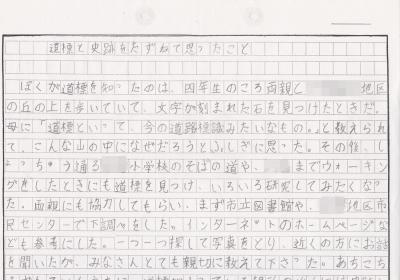 道標と史跡をたずねて思ったこと
ぼくが道標を知ったのは、四年生のころ両親と地区
の丘の上を歩いていて、文字が刻まれた石を見つけたときだ。
母に「道標といって、今の道路標識みたいなもの。」と教えられ
て、こんな山の中になぜだろうとふしぎに思った。その後、し
ょっちゅう通る小学校のそばの道や、までウォーキン
グをしたときにも道標を見つけ、いろいろ研究してみたくなっ
た。両親にも協力してもらい、まず市立図書館や、地区市
民センターで下調べをした。インターネットのホームページな
ども参考にした。一つ一つ探して写真をとり、近くの方にお話
を聞いたが、みなさんとても親切に教えて下さった。あちこち